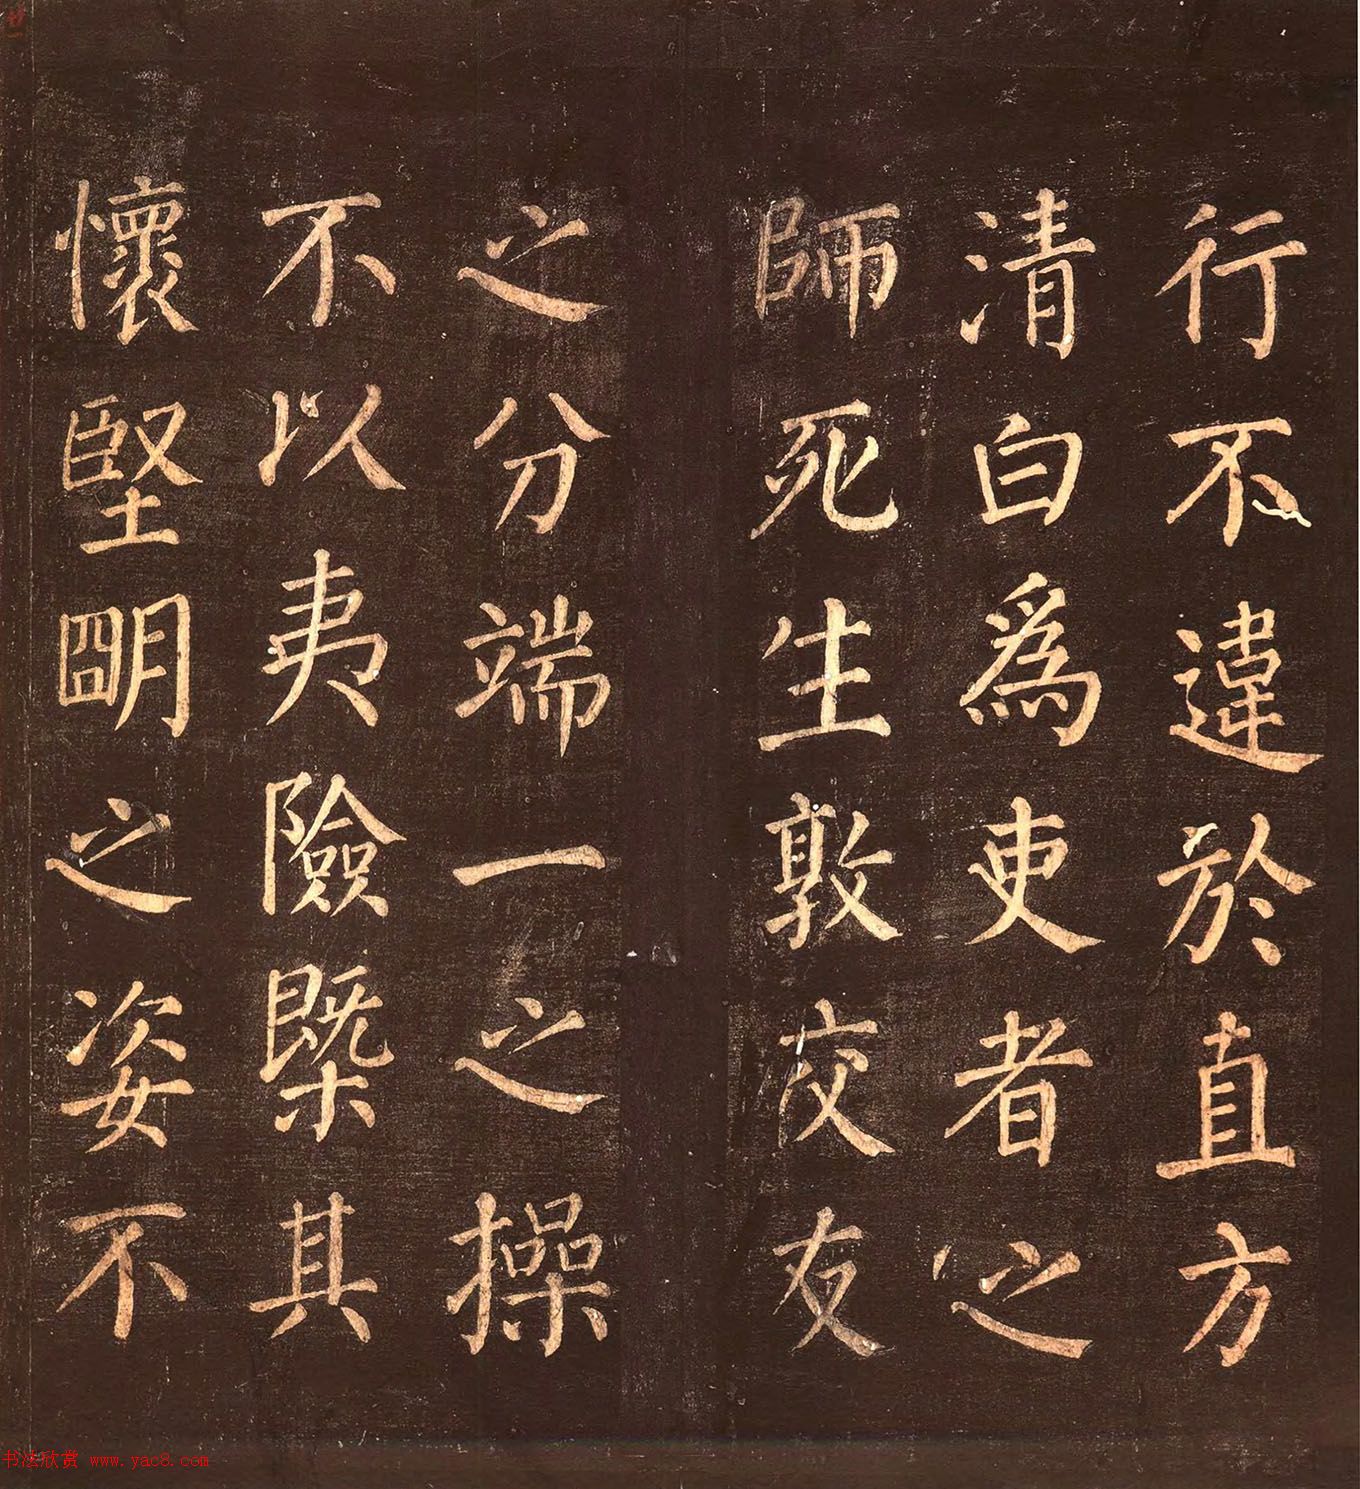 行不違於直方
清白為吏者之
師死生敦交友
之分端一之操
不以夷險槩其
懷堅明之姿不
书法欣赏 www.yac8.com